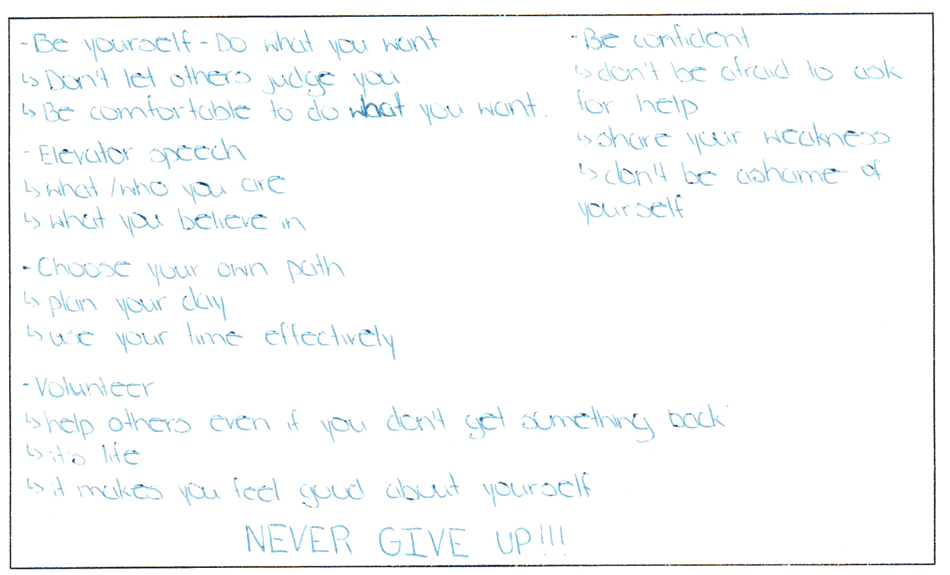 - Be yourself - Do what you want
↳ Don't let others judge you.
↳ Be comfortable to do what you want.
- Elevator speech
↳ what / who you are
↳ what you believe in
- Choose your own path
↳ plan your day
↳ use your time effectively
- Volunteer
↳ help others even if you don't get something back
↳ it's life
↳ it makes you feel good about yourself
- Be confident
↳ don't be afraid to ask
for help
↳ share your weakness
↳ don't be ashame of
yourself
NEVER GIVE UP!!!